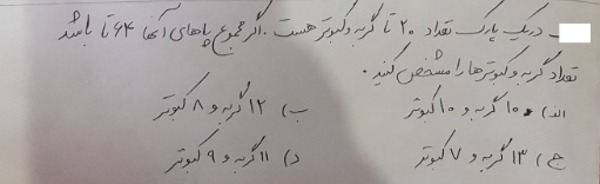 در یک پارک تعداد ۲۰ تا گربه و کبوتر هست. اگر مجموع پاهای آنها ۶۴ تا باشد
تعداد گربه و کبوترها را مشخص کنید.
الف) ۱۰ گربه و ۱۰ کبوتر ب) ۱۲ گربه و ۸ کبوتر
ج) ۱۳ گربه و ۷ کبوتر د) ۱۱ گربه و ۹ کبوتر